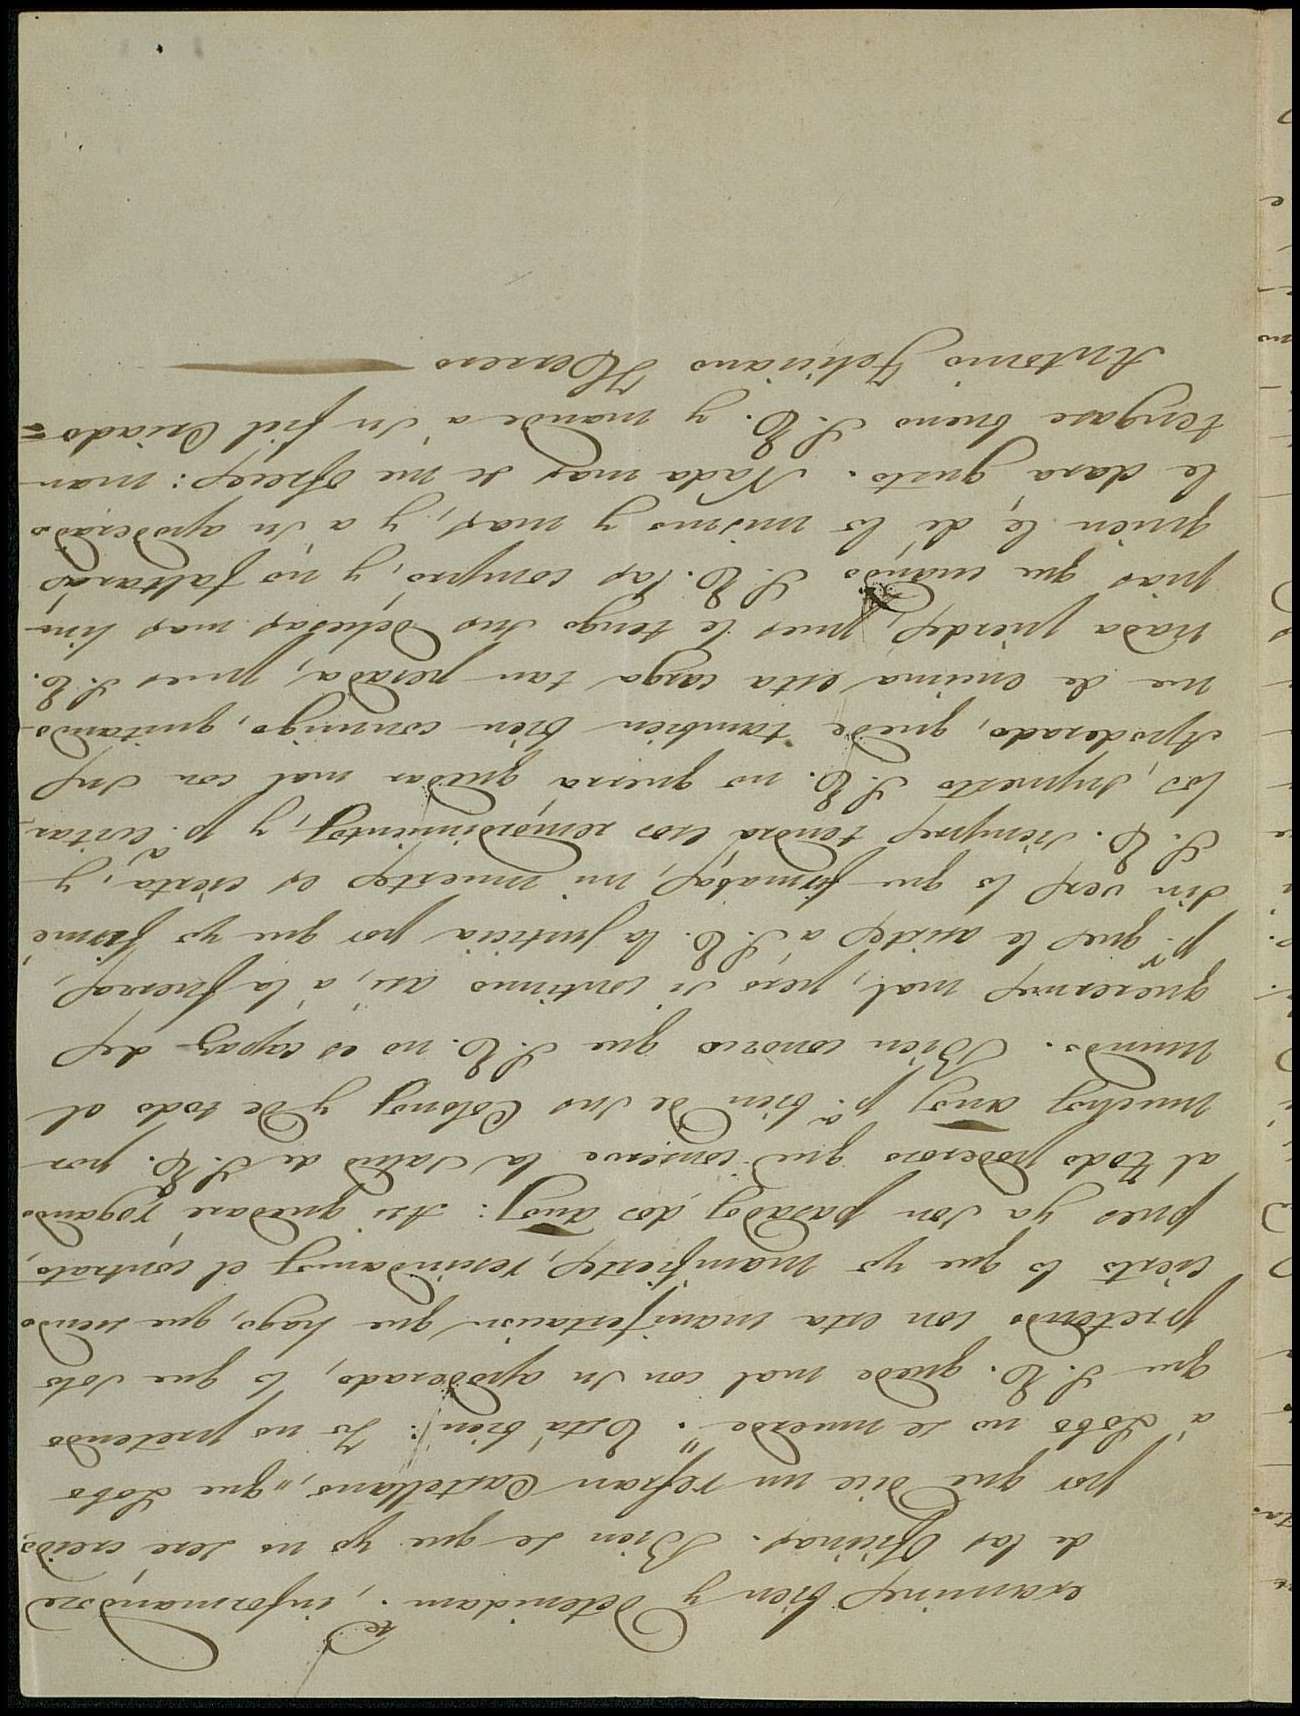 examine bien y detenidam.te, informandose
de las oficinas. Bien se que yo no sere creido,
por que dice un refran Castellano, "que Lobo
á Lobo no se muerde". Está bien: Yo no pretendo
que S. E. quede mal con su apoderado, lo que solo
pretendo con esta manifestacion que hago, que siendo
cierto lo que yo manifieste, rescindamos el contrato,
pues ya son pasados dos años: Asi quedare rogando
al todo poderoso que conserve la salud de S. E. por
muchos años p.a bien de sus Colonos y de todo el
mundo. Bien conozco que S. E. no es capaz de
quererme mal, pero si continuo asi, á la fuerza,
p.r que le asiste a S. E. la justicia por que yo firmé
sin ver lo que firmaba, mi muerte es cierta, y
á S. E. siempre tendra esos remordimientos, y p. evitar-
los, supuesto S. E. no querra quedar mal con su
Apoderado, quede tambien bien conmigo, quitando-
me de encima esta carga tan pesada, pues S. E.
nada pierde, pues le tengo sus dehesas mas lim-
pias que cuando S. E. las compró, y no faltará
quien le dé lo mismo y mas, y a su apoderado
le dara gusto. Nada mas se me ofrece: man-
tengase bueno S. E. y mande á su fiel Criado =
Antonio Feliciano Herrero